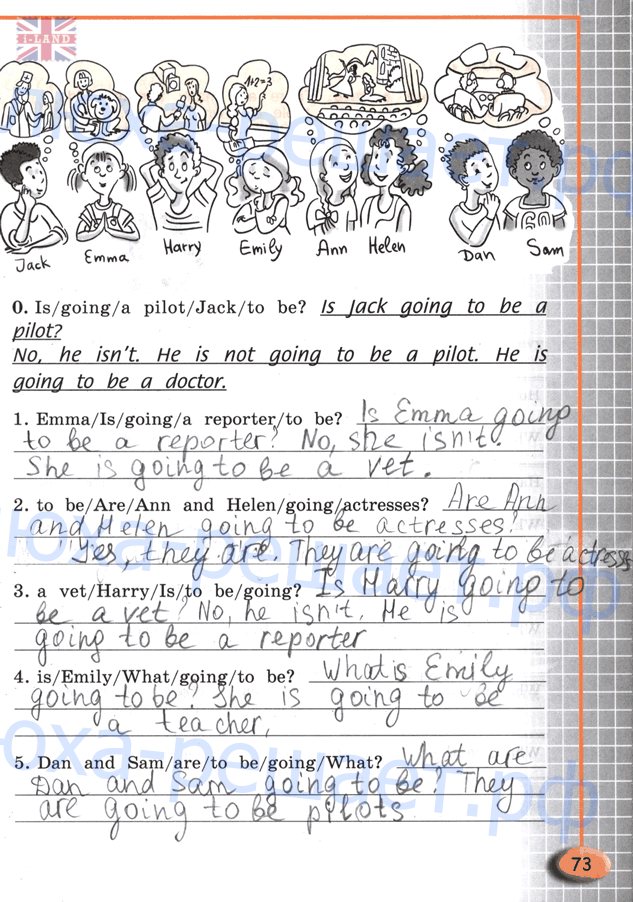 i-LAND
1+2=3
Jack
Emma
Harry
Emily
Ann
Helen
Dan
Sam
0. Is/going/a pilot/Jack/to be? Is Jack going to be a
pilot?
No, he isn't. He is not going to be a pilot. He is
going to be a doctor.
1. Emma/Is/going/a reporter/to be? Is Emma going
to be a reporter? No, she isn't.
She is going to be a vet.
2. to be/Are/Ann and Helen/going/actresses? Are Ann
and Helen going to be actresses?
Yes, they are. They are going to be actresses
3. a vet/Harry/Is/to be/going? Is Harry going to
be a vet? No, he isn't. He is
going to be a reporter
4. is/Emily/What/going/to be? What is Emily
going to be? She is going to be
a teacher.
5. Dan and Sam/are/to be/going/What? What are
Dan and Sam going to be? They
are going to be pilots
73
юха-решает.рф
юха-решает.рф
юха-решает.рф